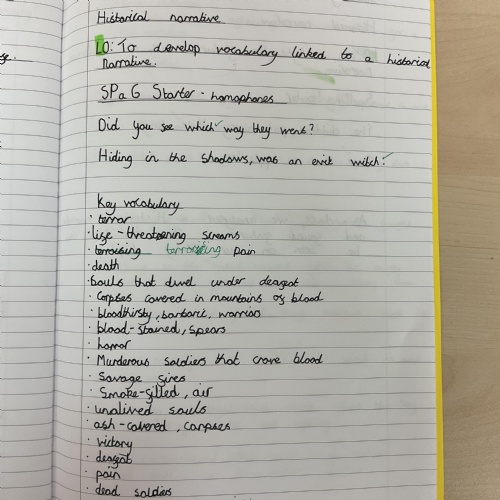 Historical narrative
LO: To develop vocabulary linked to a historical
narrative.
SPaG Starter - homophones
Did you see which way they went?
Hiding in the shadows, was an evil witch.
Key vocabulary
· terror
· life-threatening screams
· terroising terrorising pain
· death
· souls that dwel under deafeat
· Corpses covered in mountains of blood
· bloodthirsty, barbaric, warriors
· blood-stained, spears
· horror
· Murderous soldiers that crave blood
· Savage fires
· Smoke-filled, air
· unalived souls
· ash-covered, corpses
· victory
· deafeat
· pain
· dead soldiers